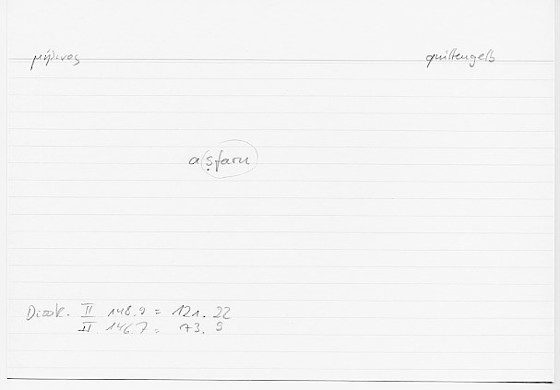 μήλινος quittengelb
aṣfaru
Diosk. II 148.9 = 121. 22
II 146.7 = 73. 9